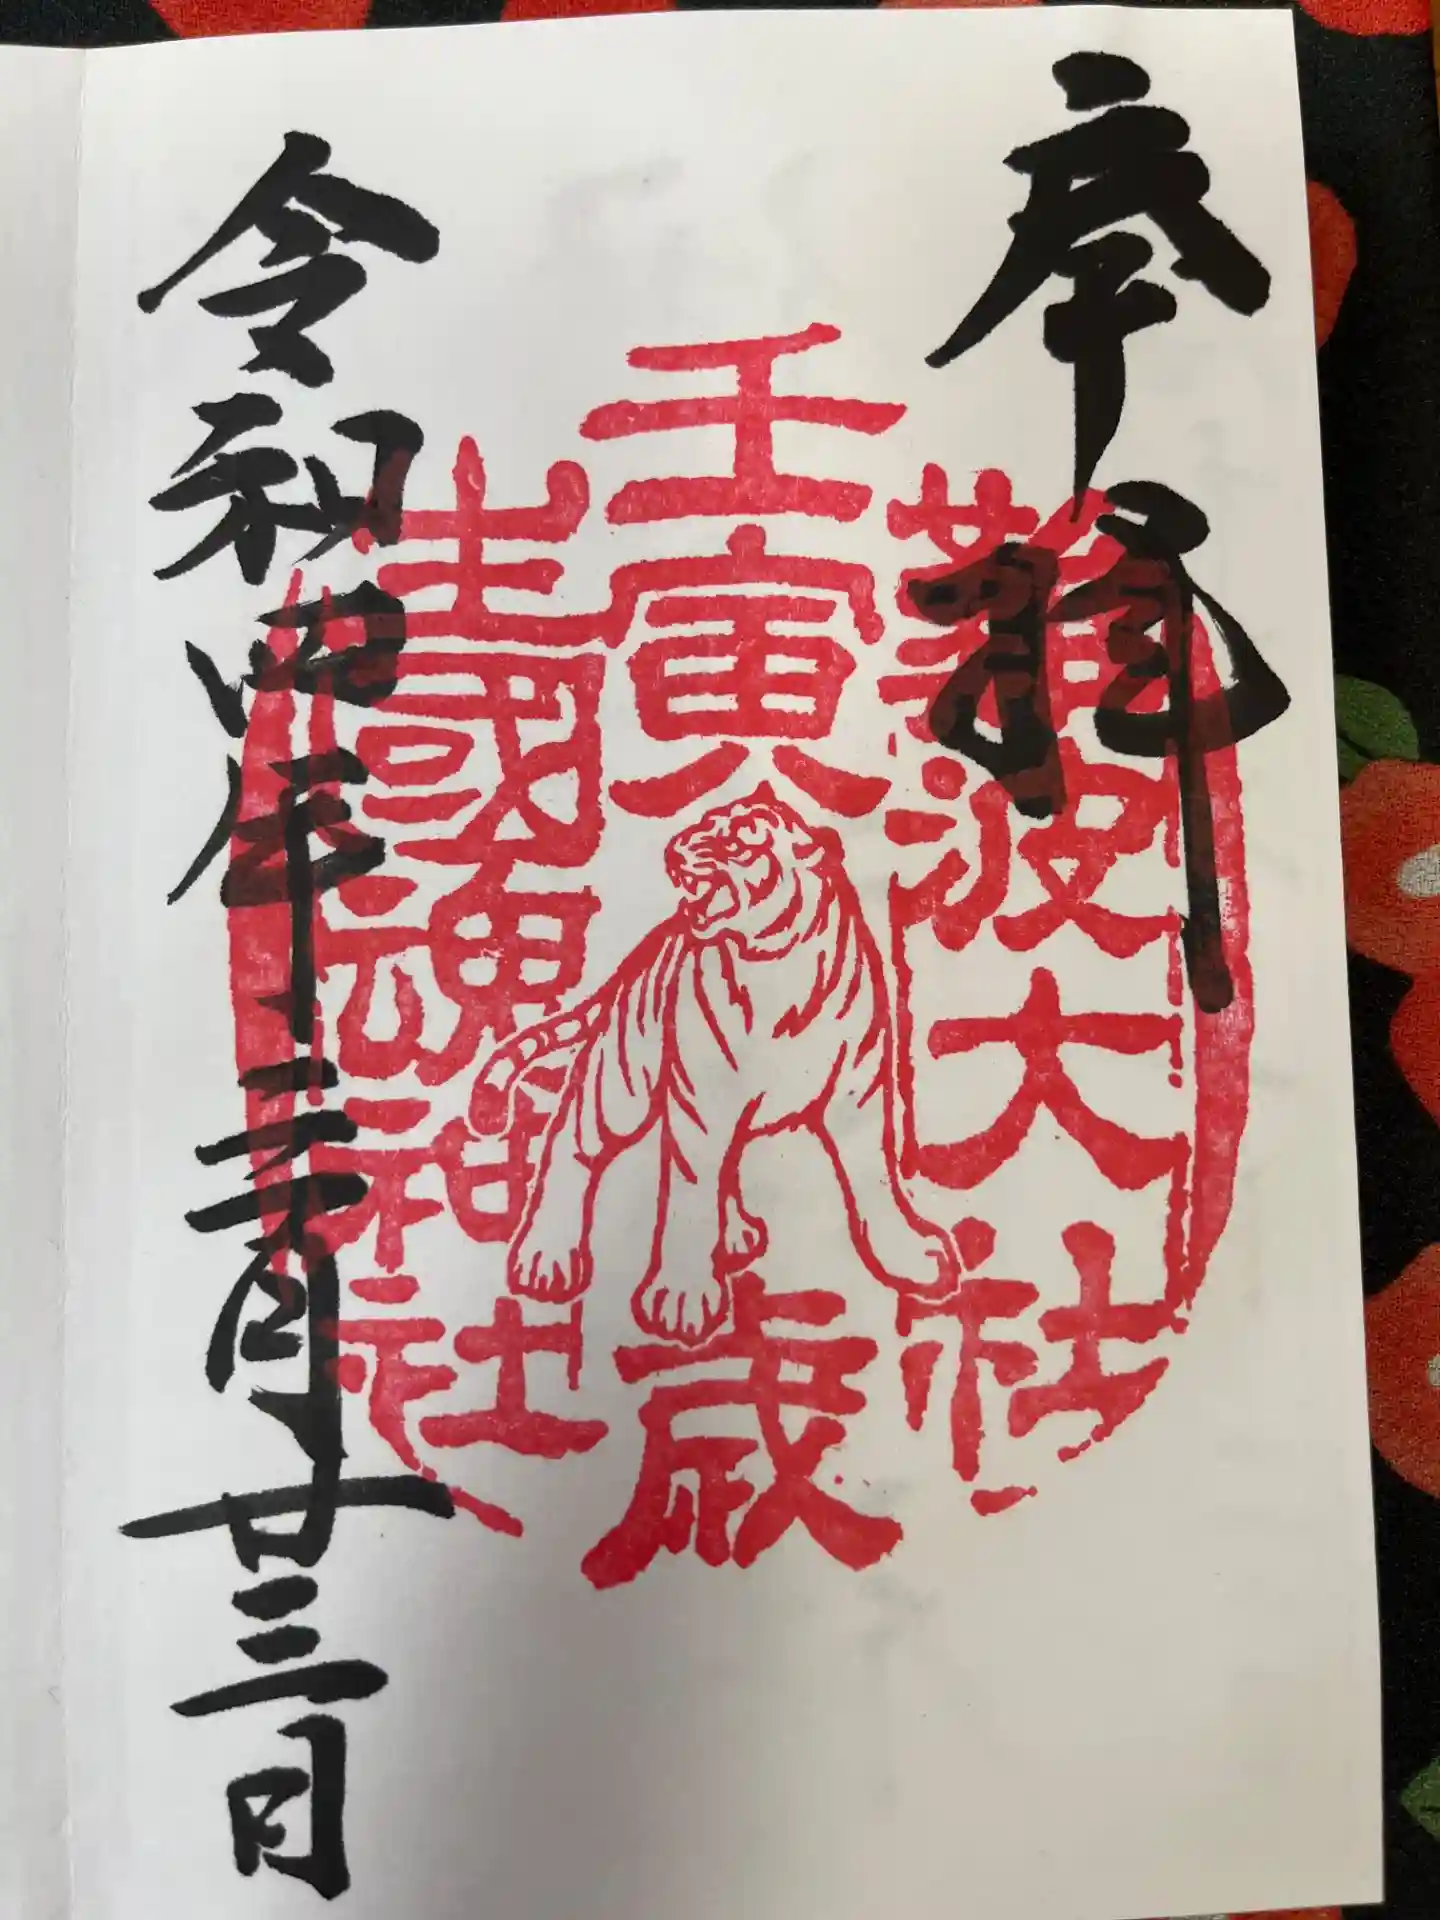 奉拝
難波大社
壬寅歳
生國魂神社
令和四年三月廿三日